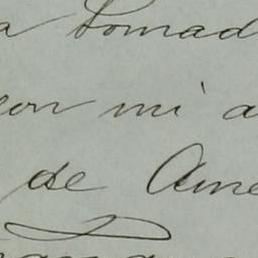 a tomad
con mi a
de Ame